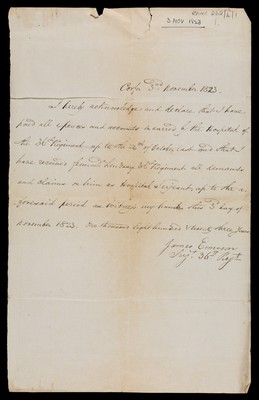 3 NOV 1823
Corfu 3d November 1823.
I hereby acknowledge and declare that I have
paid all expences and accounts to the Hospital of
the 36th Regiment up to the of October last and that I
have received from 36th Regiment all demands
and claims on him as Hospital Serjeant, up to the a
forementd period as witness my hand this 3d day of
November 1823. One thousand eight hundred & twenty three years
James Emerson
Serjt 36th Regt